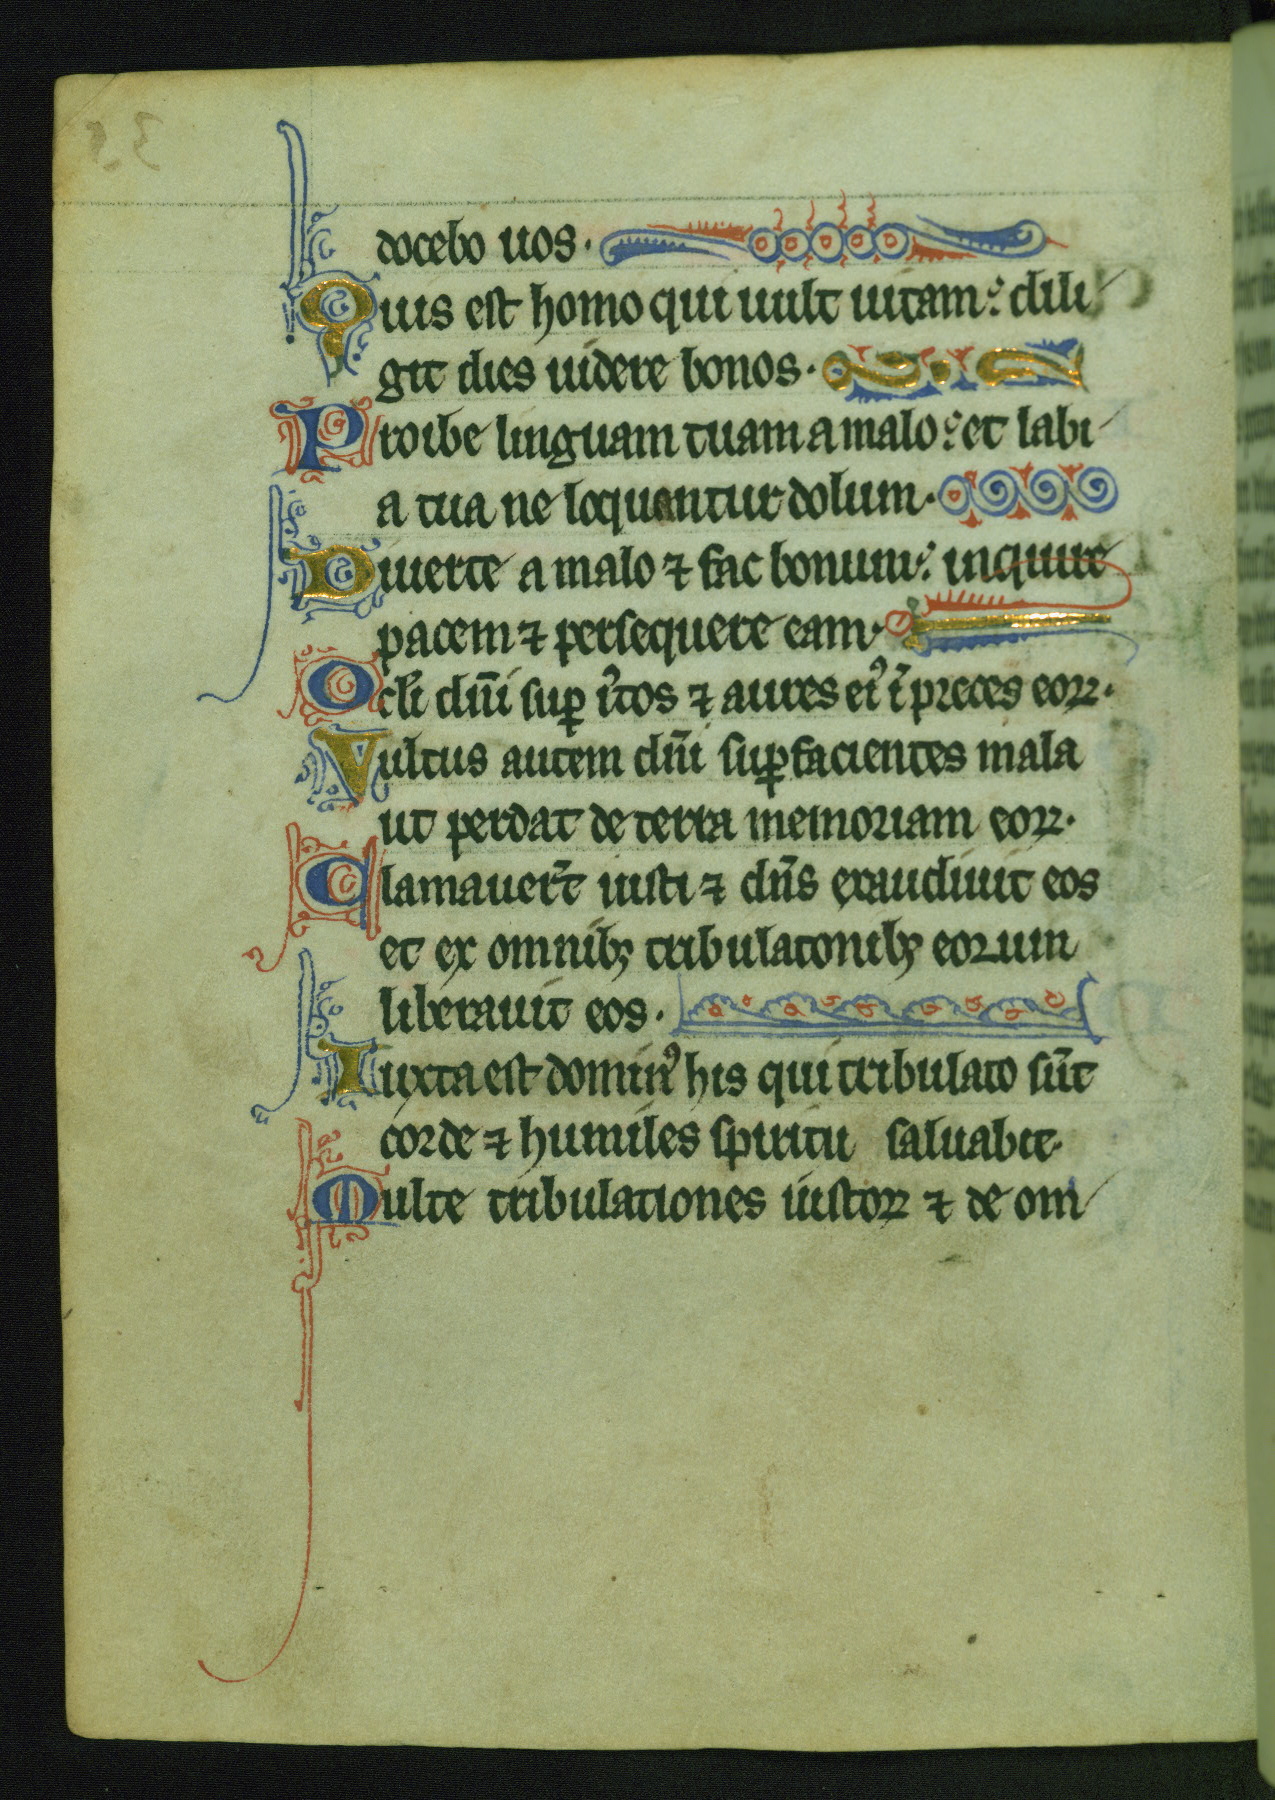 docebo uos·
Quis est homo qui uult uitam: dili
git dies uidere bonos·
Proibe linguam tuam a malo: et labi
a tua ne loquantur dolum·
Diuerte a malo ⁊ fac bonum: inquire
pacem ⁊ persequere eam·
Ocl̃i dñi suꝑ i᷒tos ⁊ aures eiꝰ ĩ preces eoꝝ·
Vultus autem dñi suꝑ facientes mala
ut perdat de terra memoriam eoꝝ·
Clamauer̃t iusti ⁊ dñs exaudiuit eos
et ex omnibꝫ tribulatonibꝫ eorum
liberauit eos·
Iuxta est dominꝰ his qui tribulato sũt
corde ⁊ humiles spiritu saluabit·
Multe tribulationes iustoꝝ ⁊ de om